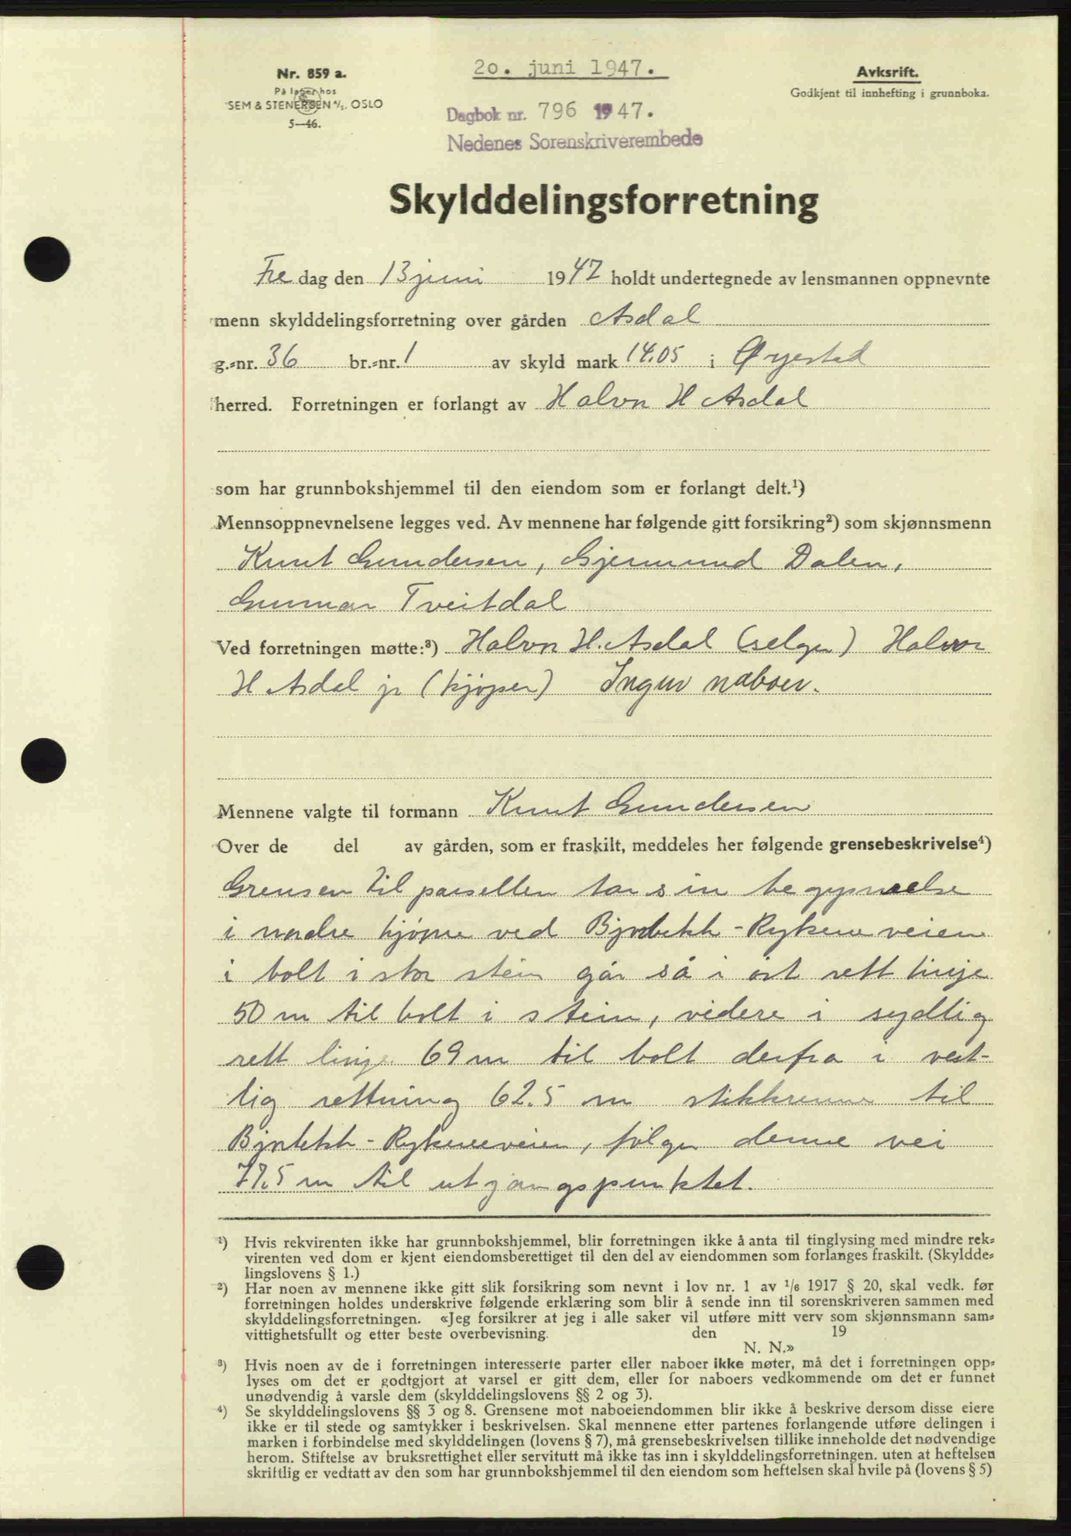 Nr. 859 a.
På lager hos
SEM & STENERSEN A/S. OSLO
5—46.
20. juni 1947.
Dagbok nr. 796 1947.
Nedenes Sorenskriverembede
Avksrift.
Godkjent til innhefting i grunnboka.
Skylddelingsforretning
Fre dag den 13 juni 1947 holdt undertegnede av lensmannen oppnevnte
menn skylddelingsforretning over gården Asdal
g.-nr. 36 br.-nr. 1 av skyld mark 14.05 i Øyestad
herred. Forretningen er forlangt av Halvor H Asdal
som har grunnbokshjemmel til den eiendom som er forlangt delt.¹)
Mennsoppnevnelsene legges ved. Av mennene har følgende gitt forsikring²) som skjønnsmenn
Knut Gundersen, Gjermund Dalen,
Gunnar Tveitdal
Ved forretningen møtte:³) Halvor H. Asdal (selger) Halvor
H Asdal jr (kjøper) Ingen naboer.
Mennene valgte til formann Knut Gundersen
Over de del av gården, som er fraskilt, meddeles her følgende grensebeskrivelse⁴)
Grensen til parsellen tar sin begynnelse
i nordre hjørne ved Bjorbekk - Rykeneveien
i bolt i stor stein går så i øst rett linje
50 m til bolt i stein, videre i sydlig
rett linje 69 m til bolt derfra i vest-
lig rettning 62.5 m stikkrenne til
Bjorbekk - Rykeneveien, følger denne vei
77,5 m til utgangspunktet.
¹) Hvis rekvirenten ikke har grunnbokshjemmel, blir forretningen ikke å anta til tinglysing med mindre rek-
virenten ved dom er kjent eiendomsberettiget til den del av eiendommen som forlanges fraskilt. (Skyldde-
lingslovens § 1.)
²) Har noen av mennene ikke gitt slik forsikring som nevnt i lov nr. 1 av 1/6 1917 § 20, skal vedk. før
forretningen holdes underskrive følgende erklæring som blir å sende inn til sorenskriveren sammen med
skylddelingsforretningen. «Jeg forsikrer at jeg i alle saker vil utføre mitt verv som skjønnsmann sam-
vittighetsfullt og etter beste overbevisning. den 19
N. N.»
³) Hvis noen av de i forretningen interesserte parter eller naboer ikke møter, må det i forretningen opp-
lyses om det er godtgjort at varsel er gitt dem, eller for naboers vedkommende om det er funnet
unødvendig å varsle dem (skylddelingslovens §§ 2 og 3).
⁴) Se skylddelingslovens §§ 3 og 8. Grensene mot naboeiendommen blir ikke å beskrive dersom disse eiere
ikke er til stede og samtykker i beskrivelsen. Skal mennene etter partenes forlangende utføre delingen i
marken i forbindelse med skylddelingen (lovens § 7), må grensebeskrivelsen tillike inneholde det nødvendige
herom. Stiftelse av bruksrettighet eller servitutt må ikke tas inn i skylddelingsforretningen. uten at heftelsen
skriftlig er vedtatt av den som har grunnbokshjemmel til den eiendom som heftelsen skal hvile på (lovens § 5)